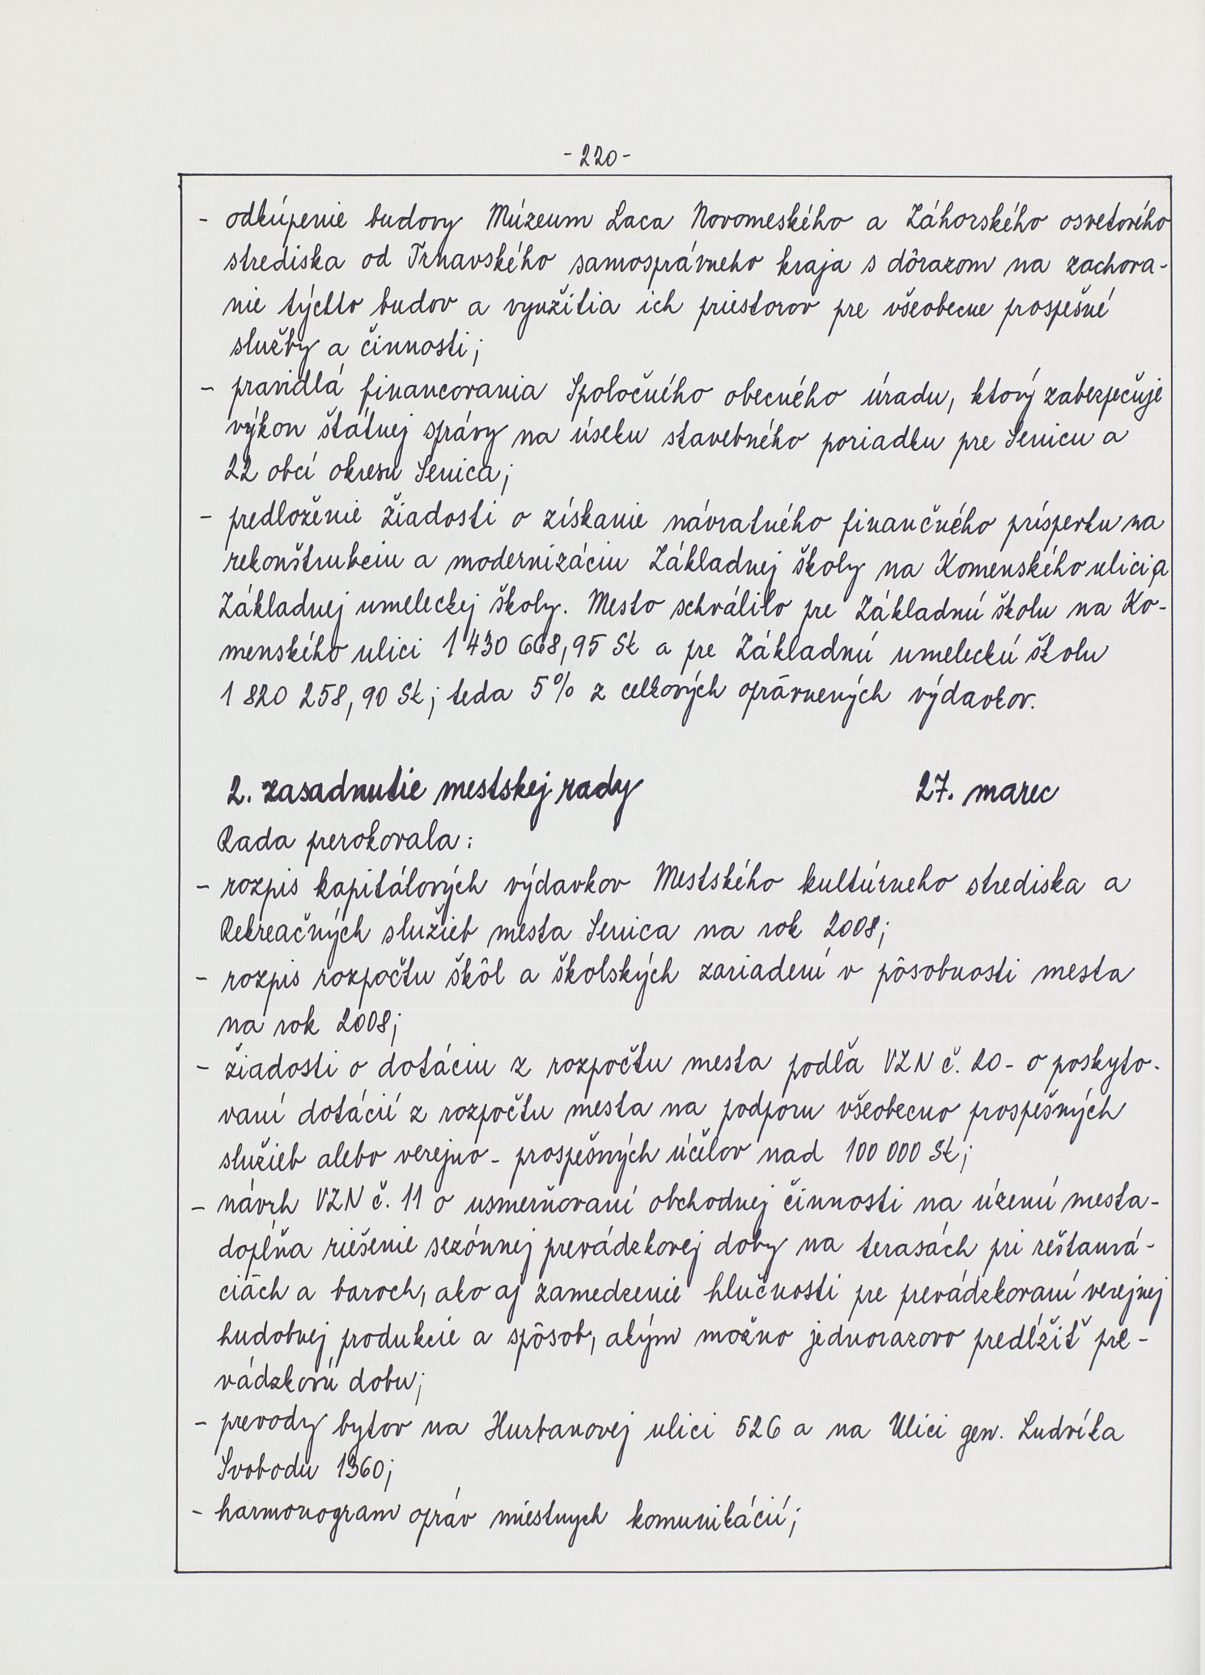 - 220 -
- odkúpenie budovy Múzeum Laca Novomeského a Záhorského osvetového
strediska od Trnavského samosprávneho kraja s dôrazom na zachova-
nie týchto budov a využitia ich priestorov pre všeobecne prospešné
služby a činnosti;
- pravidlá financovania Spoločného obecného úradu, ktorý zabezpečuje
výkon štátnej správy na úseku stavebného poriadku pre Senicu a
22 obcí okresu Senica;
- predloženie žiadosti o získanie návratného finančného príspevku na
rekonštrukciu a modernizáciu Základnej školy na Komenského ulici a
Základnej umeleckej školy. Mesto schválilo pre Základnú školu na Ko-
menského ulici 1 430 668,95 Sk a pre Základnú umeleckú školu
1 820 258,90 Sk; teda 5% z celkových oprávnených výdavkov.
2. zasadnutie mestskej rady 27. marec
Rada prerokovala:
- rozpis kapitálových výdavkov Mestského kultúrneho strediska a
Rekreačných služieb mesta Senica na rok 2008;
- rozpis rozpočtu škôl a školských zariadení v pôsobnosti mesta
na rok 2008;
- žiadosti o dotáciu z rozpočtu mesta podľa VZN č. 20 - o poskyto-
vaní dotácií z rozpočtu mesta na podporu všeobecno prospešných
služieb alebo verejno - prospešných účelov nad 100 000 Sk;
- návrh VZN č. 11 o usmerňovaní obchodnej činnosti na území mesta -
dopĺňa riešenie sezónnej prevádzkovej doby na terasách pri reštaurá-
ciách a baroch, ako aj zamedzenie hlučnosti pre prevádzkovaní verejnej
hudobnej produkcie a spôsob, akým možno jednorazovo predĺžiť pre-
vádzkovú dobu;
- prevody bytov na Hurbanovej ulici 526 a na Ulici gen. Ludvíka
Svobodu 1360;
- harmonogram opráv miestnych komunikácií;